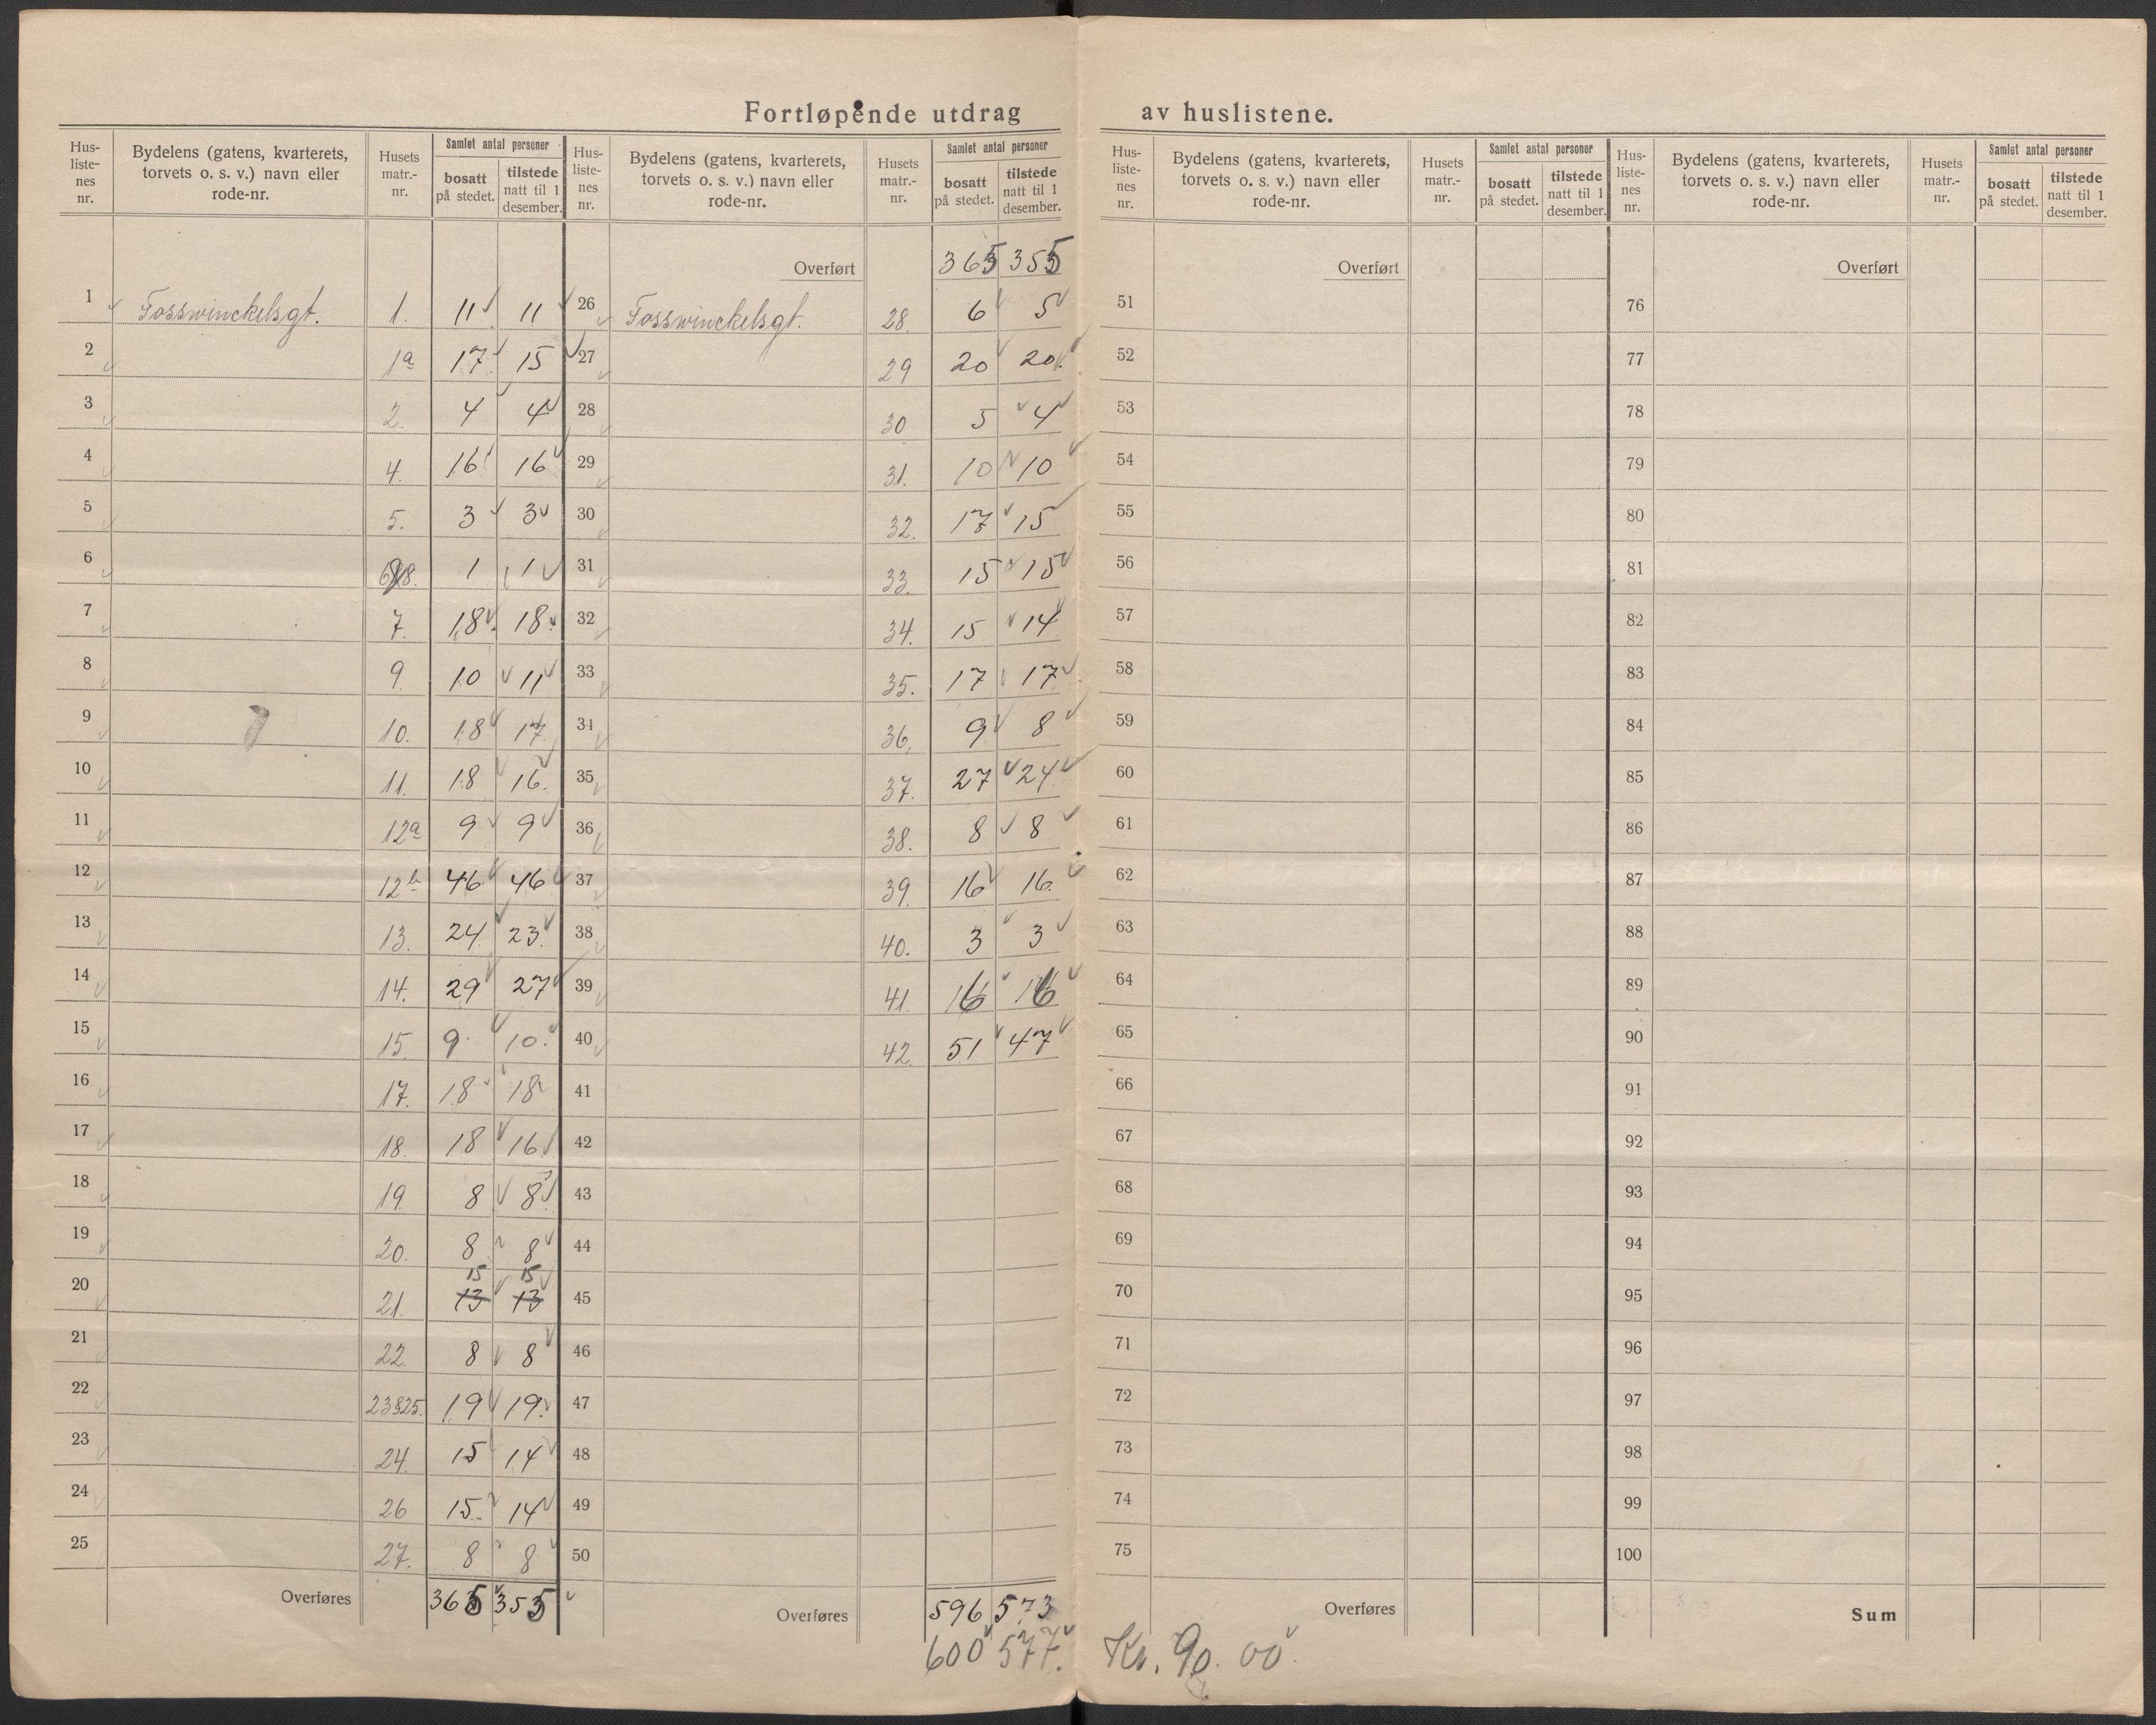 Fortløpende utdrag av huslistene.
Hus-listenes nr. | Bydelens (gatens, kvarterets, torvets o. s. v.) navn eller rode-nr. | Husets matr.-nr. | Samlet antal personer bosatt på stedet. | tilstede natt til 1 desember.
1 Fosswinckelsgt. 1. 11 11
2 1a 17 15
3 2. 4 4
4 4. 16 16
5 5. 3 3
6 1 1
7 7. 18 18
8 9. 10 11
9 10. 18 17
10 11. 18 16
11 12a 9 9
12 12b 46 46
13 13. 24 23
14 14. 29 27
15 15. 9 10
16 17. 18 18
17 18. 18 16
18 19. 8 8
19 20. 8 8
20 21. 13 15 13 15
21 22. 8 8
22 23&25. 19 19
23 24. 15 14
24 26 15 14
25 27. 8 8
Overføres 365 355
Hus-listenes nr. | Bydelens (gatens, kvarterets, torvets o. s. v.) navn eller rode-nr. | Husets matr.-nr. | Samlet antal personer bosatt på stedet. | tilstede natt til 1 desember.
Overført 365 355
26 Fosswinckelsgt. 28. 6 5
27 29 20 20
28 30 5 4
29 31. 10 10
30 32. 17 15
31 33. 15 15
32 34. 15 14
33 35. 17 17
34 36. 9 8
35 37. 27 24
36 38. 8 8
37 39. 16 16
38 40. 3 3
39 41. 16 16
40 42. 51 47
41
42
43
44
45
46
47
48
49
50
Overføres 596 573
600 577.
Hus-listenes nr. | Bydelens (gatens, kvarterets, torvets o. s. v.) navn eller rode-nr. | Husets matr.-nr. | Samlet antal personer bosatt på stedet. | tilstede natt til 1 desember.
Overført
51
52
53
54
55
56
57
58
59
60
61
62
63
64
65
66
67
68
69
70
71
72
73
74
75
Overføres
Kr. 90.00
Hus-listenes nr. | Bydelens (gatens, kvarterets, torvets o. s. v.) navn eller rode-nr. | Husets matr.-nr. | Samlet antal personer bosatt på stedet. | tilstede natt til 1 desember.
Overført
76
77
78
79
80
81
82
83
84
85
86
87
88
89
90
91
92
93
94
95
96
97
98
99
100
Sum